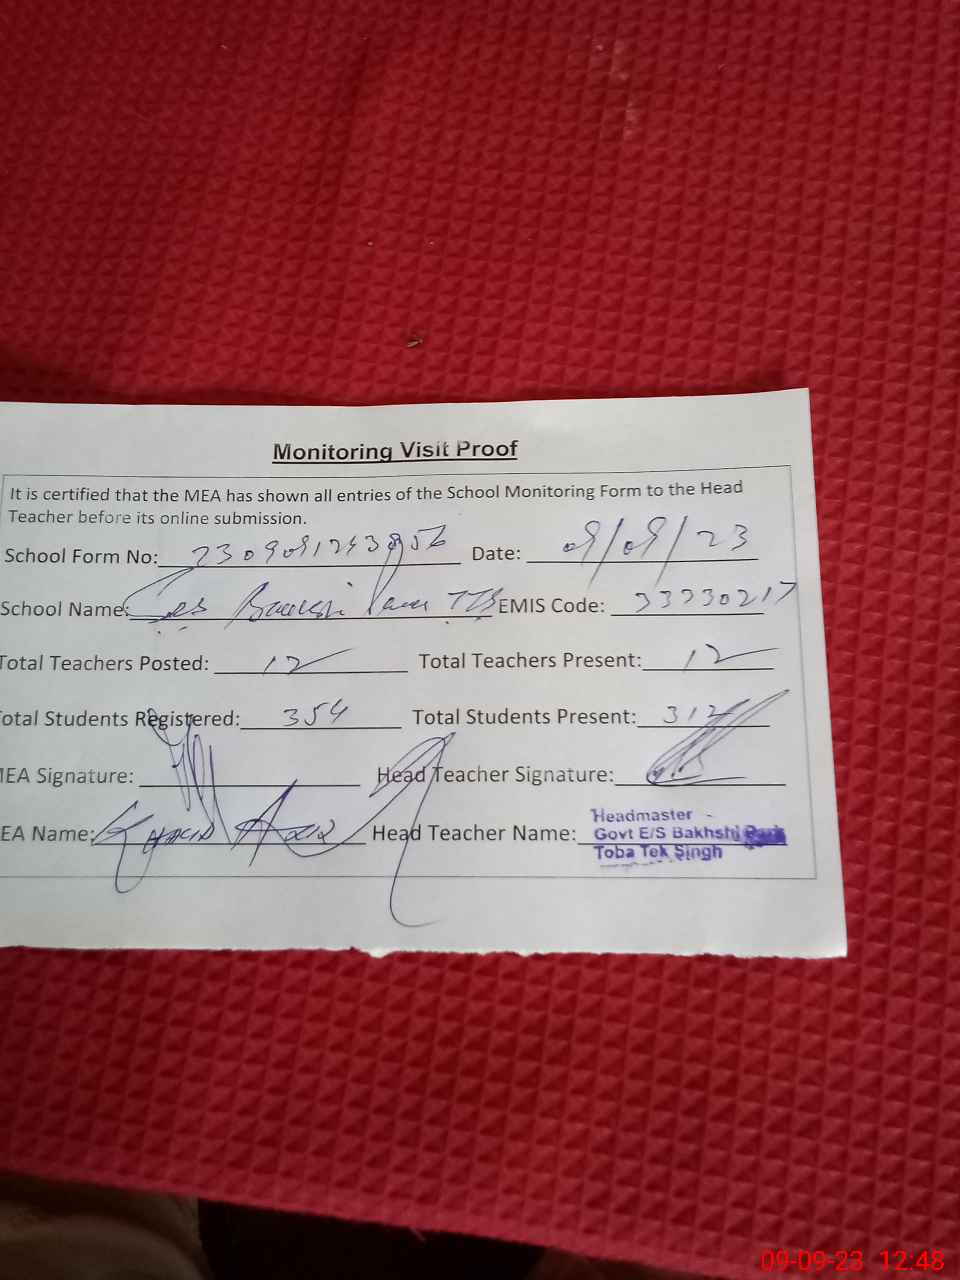 Monitoring Visit Proof
It is certified that the MEA has shown all entries of the School Monitoring Form to the Head
Teacher before its online submission.
School Form No: Date: 09/09/23
School Name: EMIS Code: 33330217
Total Teachers Posted: 12 Total Teachers Present: 12
otal Students Registered: 354 Total Students Present: 312
EA Signature: Head Teacher Signature:
EA Name: Head Teacher Name: Headmaster
Govt E/S Bakhshi Park
Toba Tek Singh
09-09-23 12:48